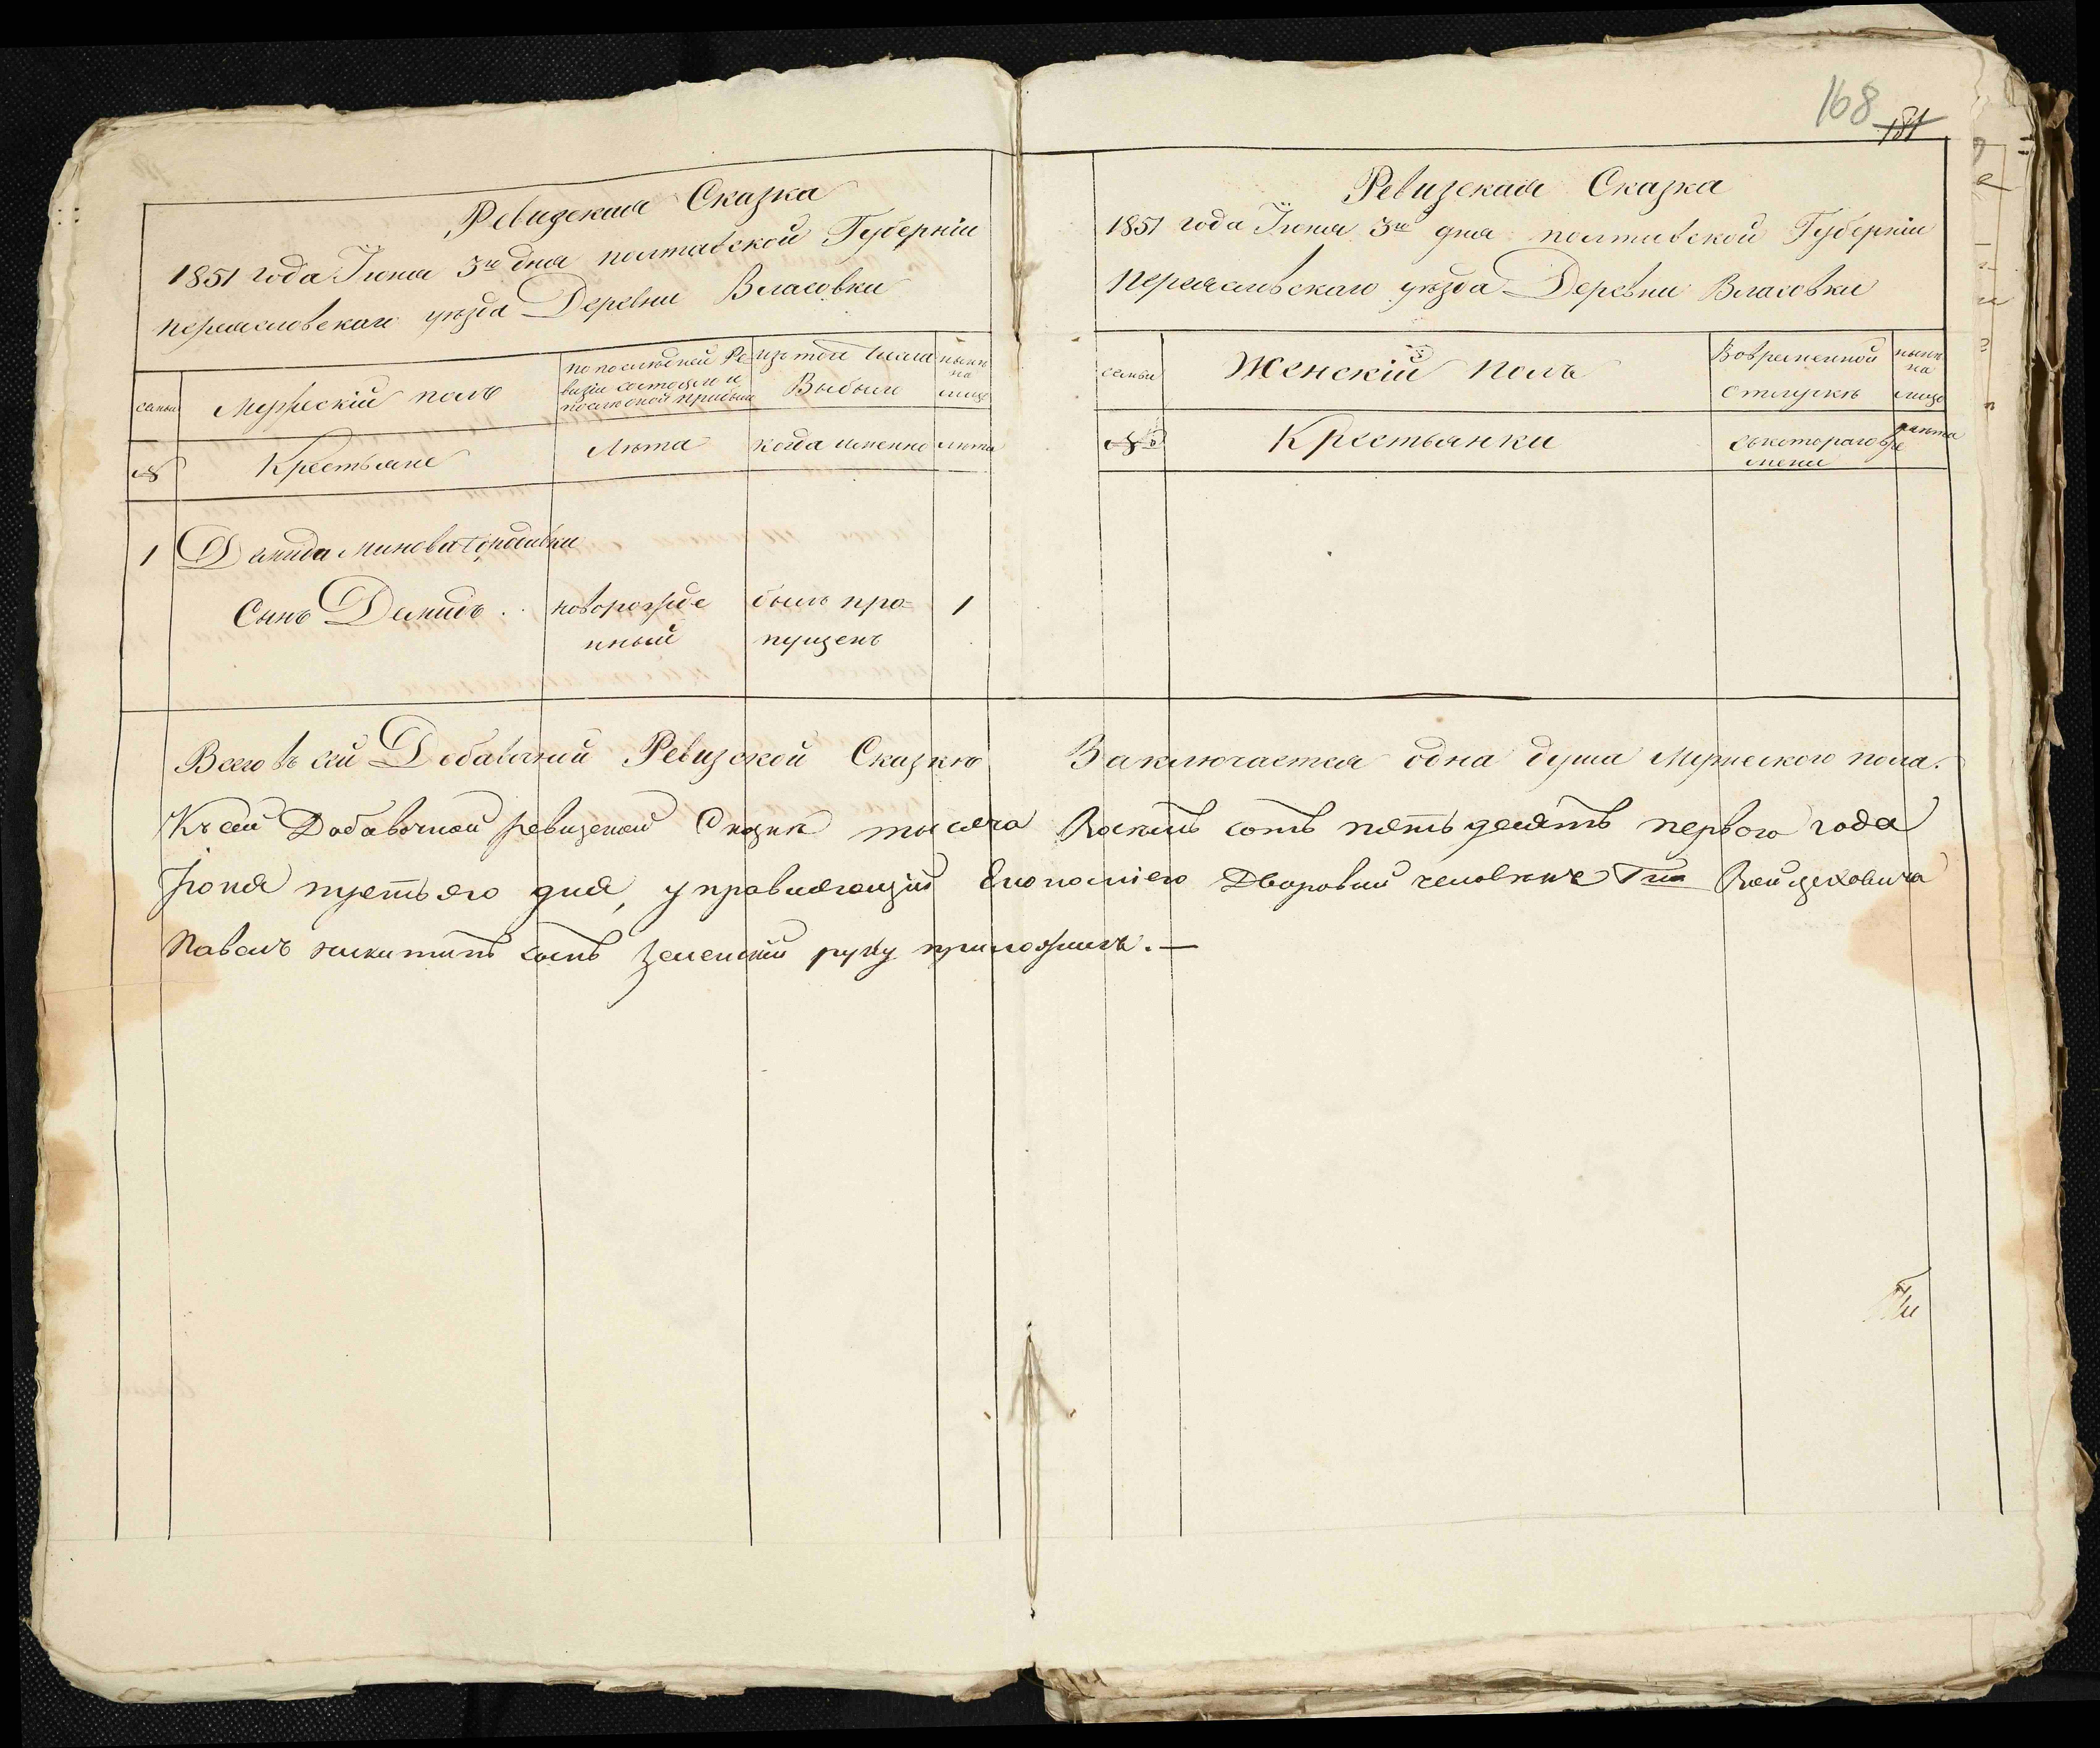 168
181
Ревизская Сказка
1851 года Іюня 3го дня полтавской Губерніи
переяславскаго уѣзда Деревни Власовки
семьи
Мужескій полъ
по последней Ре-
визіи состояло и
послѣ оной прибыло
изъ того числа
Выбыло
нынѣ
на
лицо
№
Крестьяне
Лѣта
когда именно
лѣта
1
Демида Минова
Сынъ Демидъ
новорожде
нный
былъ про=
пущенъ
1
Ревизская Сказка
1851 года Іюня 3го дня полтавской Губерніи
переяславскаго уѣзда Деревни Власовки
семьи
Женскій полъ
Во временной
отлучкѣ
нынѣ
на
лицо
№
Крестьянки
съ котораго вре
мени
лѣта
Всего въ сей Добавочной Ревизской Сказкѣ Заключается одна душа Мужеского пола.
Къ сей Добавочной ревизской Сказкѣ тысяча Восемъ сотъ пятъдесятъ первого года
Іюня третьяго дня, управляющій Економіею Дворовый человекъ Гна Войцеховича
Павелъ Никитинъ сынъ Зеленскій руку приложилъ. —